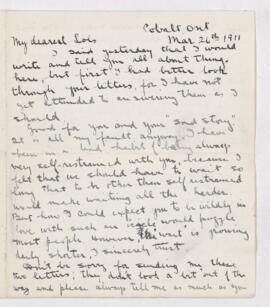 Cobalt, Ont
Mar. 26th 1911
My dearest Lois
I said yesterday that I would
write and tell you all about things
here, but first I had better look
through your letters, for I have not
yet attended to answering them as I
should.
Good for you and your "sad story"
It is all my fault anyway. I have
been in a bad habit of being always
very self-restrained with you, because I
felt that we should have to wait so
long that to be other than self restrained
would make waiting all the harder.
But how I could expect you to be wildly in
love with such an would puzzle
most people. However, the wait is growing
shorter, I sincerely trust.
Don't be sorry for sending me these
two letters; they didn't look a bit out of the
way and please always tell me as much as you